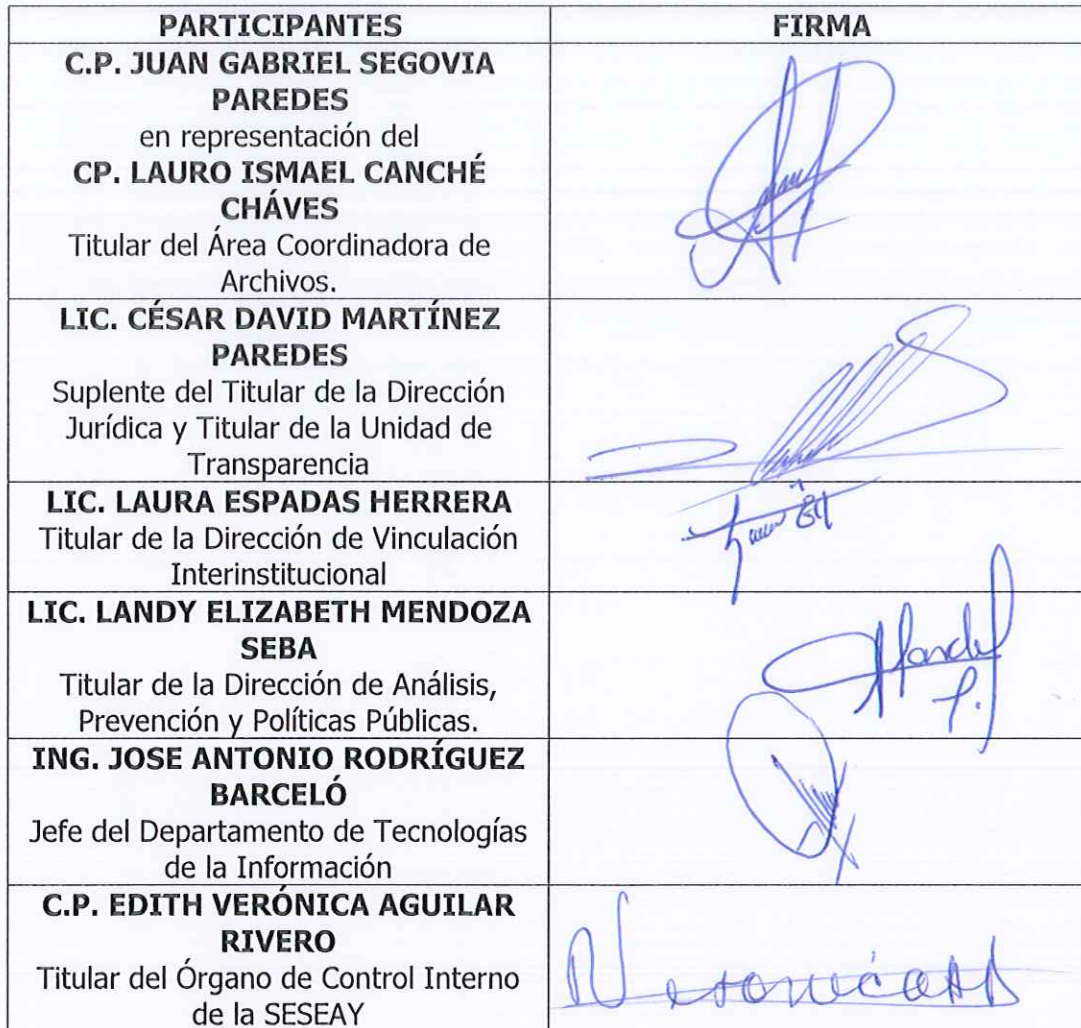 PARTICIPANTES
FIRMA
C.P. JUAN GABRIEL SEGOVIA
PAREDES
en representación del
CP. LAURO ISMAEL CANCHÉ
CHÁVES
Titular del Área Coordinadora de
Archivos.
LIC. CÉSAR DAVID MARTÍNEZ
PAREDES
Suplente del Titular de la Dirección
Jurídica y Titular de la Unidad de
Transparencia
LIC. LAURA ESPADAS HERRERA
Titular de la Dirección de Vinculación
Interinstitucional
LIC. LANDY ELIZABETH MENDOZA
SEBA
Titular de la Dirección de Análisis,
Prevención y Políticas Públicas.
ING. JOSE ANTONIO RODRÍGUEZ
BARCELÓ
Jefe del Departamento de Tecnologías
de la Información
C.P. EDITH VERÓNICA AGUILAR
RIVERO
Titular del Órgano de Control Interno
de la SESEAY